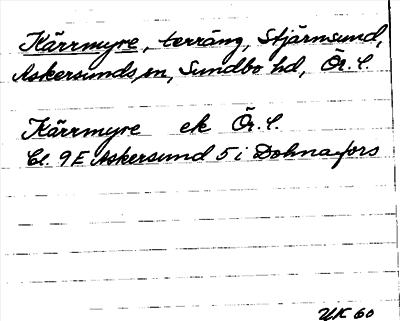 Kärrmyre, terräng, Stjärnsund,
Askersunds sn, Sundbo hd, Ör. l.
Kärrmyre ek Ör. l.
Bl. 9E Askersund 5 i Dohnafors
UK 60